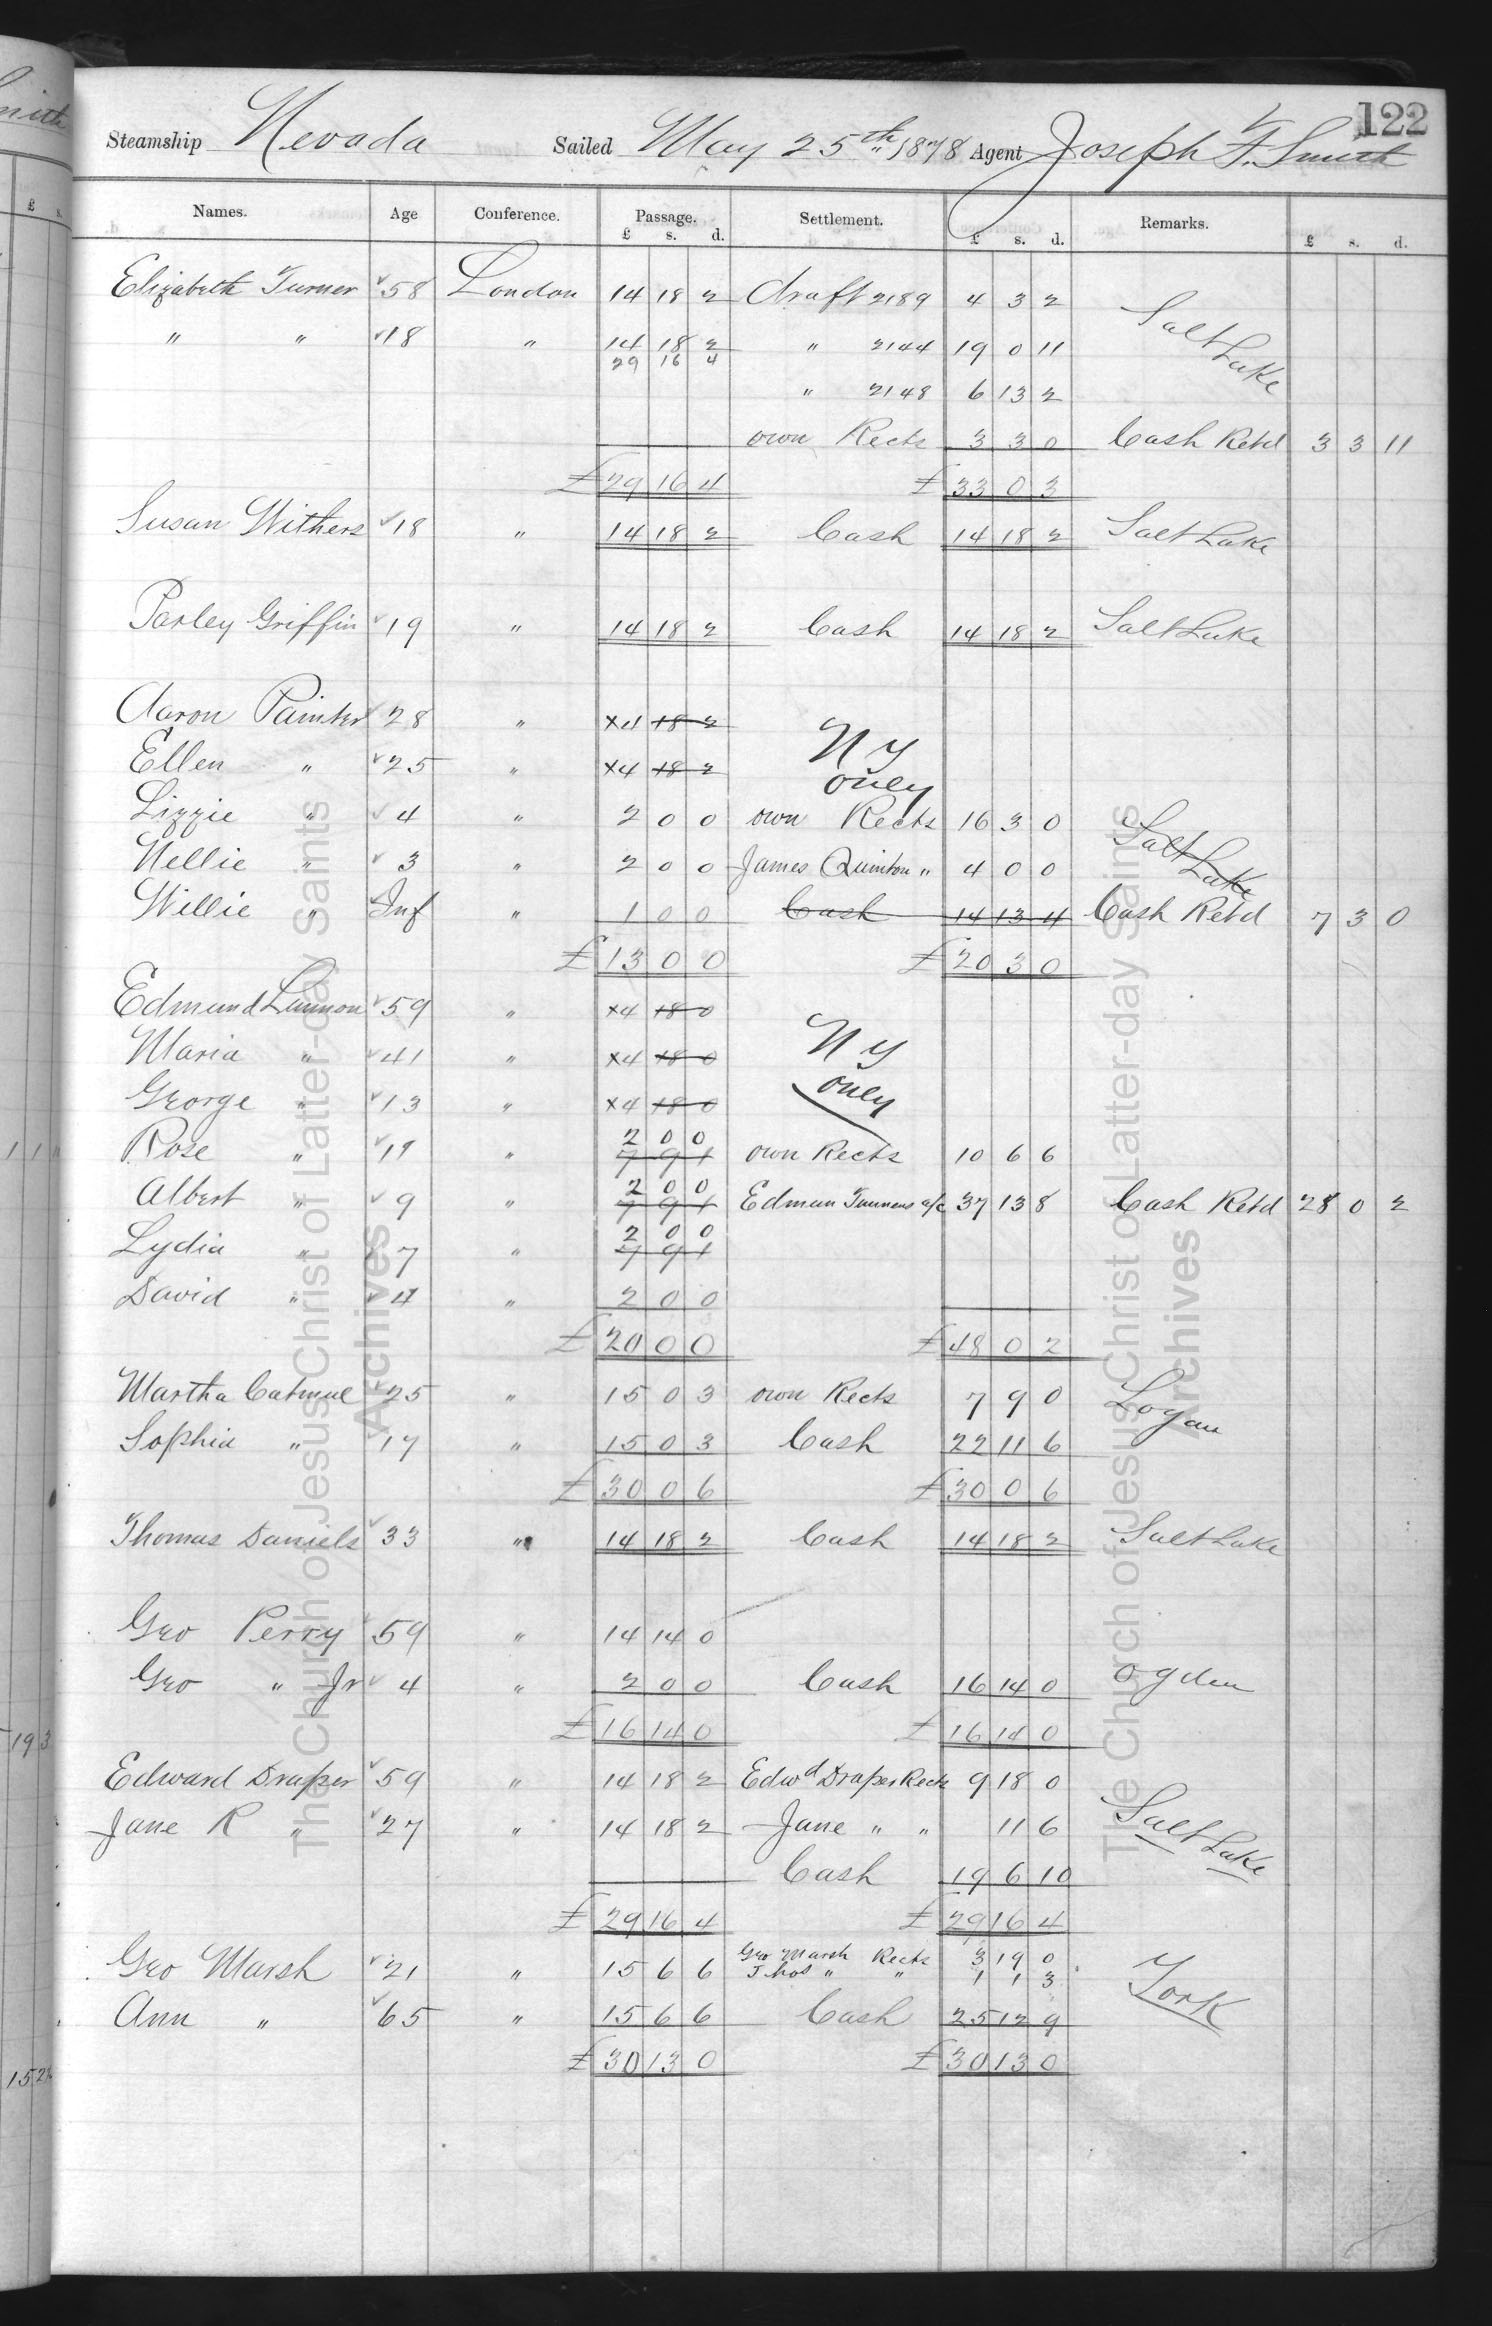 122
Steamship Nevada Sailed May 25th 1878 Agent Joseph F. Smith
Names. Age Conference. Passage. Settlement. Remarks.
£ s. d. £ s. d. £ s. d.
Elizabeth Turner 58 London 14 18 2 Draft 2189 4 3 2 Salt Lake
" " 18 " 14 18 2 " 2144 19 0 11
29 16 4
" 2148 6 13 2
own Rects 3 3 0 Cash Retd 3 3 11
£29 16 4 £33 0 3
Susan Withers 18 " 14 18 2 Cash 14 18 2 Salt Lake
Parley Griffin 19 " 14 18 2 Cash 14 18 2 Salt Lake
Aaron Painter 28 " x4 18 2 N Y
Ellen " 25 " x4 18 2 only
Lizzie " 4 " 2 0 0 own Rects 16 3 0 Salt Lake
Nellie " 3 " 2 0 0 James Quinton " 4 0 0
Willie " Inf " 1 0 0 Cash 14 13 4 Cash Retd 7 3 0
£13 0 0 £20 3 0
Edmund 59 " x4 18 0
Maria " 41 " x4 18 0 N Y
George " 13 " x4 18 0 only
2 0 0
Rose " 11 " 7 9 1 own Rects 10 6 6
2 0 0
Albert " 9 " 7 9 1 Edmun a/c 37 13 8 Cash Retd 28 0 2
2 0 0
Lydia " 7 " 7 9 1
David " 4 " 2 0 0
£20 0 0 £48 0 2
Martha Catmul 25 " 15 0 3 own Rects 7 9 0 Logan
Sophia " 17 " 15 0 3 Cash 22 11 6
£30 0 6 £30 0 6
Thomas Daniels 33 " 14 18 2 Cash 14 18 2 Salt Lake
Geo Perry 59 " 14 14 0
Geo " Jr 4 " 2 0 0 Cash 16 14 0 Ogden
£16 14 0 £16 14 0
Edward Draper 59 " 14 18 2 Edwd Draper Rects 9 18 0 Salt Lake
Jane R " 27 " 14 18 2 Jane " " 11 6
Cash 19 6 10
£29 16 4 £29 16 4
Geo Marsh 21 " 15 6 6 Geo Marsh Rects 3 19 0 York
Thos " " 1 1 3
Ann " 65 " 15 6 6 Cash 25 12 9
£30 13 0 £30 13 0
The Church of Jesus Christ of Latter-day Saints
Archives
The Church of Jesus Christ of Latter-day Saints
Archives